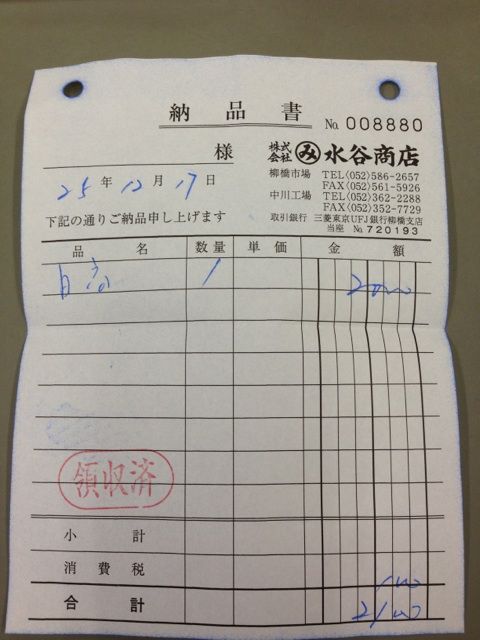 納品書
No. 008880
様
株式会社 み 水谷商店
25年12月17日
柳橋市場 TEL(052)586-2657
FAX(052)561-5926
中川工場 TEL(052)362-2288
FAX(052)352-7729
下記の通りご納品申し上げます
取引銀行 三菱東京UFJ銀行柳橋支店
当座 No. 720193
品名 数量 単価 金額
1 2000
領収済
小計
消費税 100
合計 2100